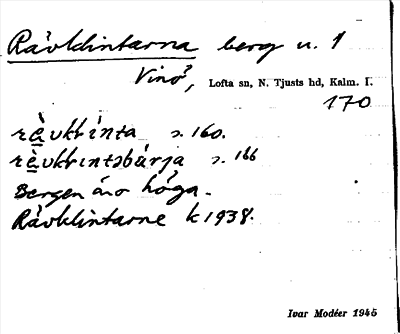 Råvklintarna berg n. 1
Vinö, Lofta sn, N. Tjusts hd, Kalm. l.
170
rèvkrínta s. 160.
rèvkrìntəbárja s. 166
Bergen äro höga.
Råvklintarne k 1938.
Ivar Modéer 1945